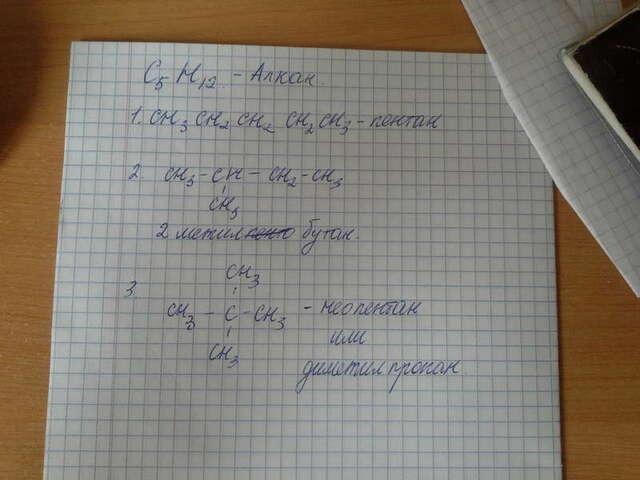 C₅H₁₂ - Алкан.
1. CH₃ CH₂ CH₂ CH₂ CH₃ - пентан
2. CH₃ - CH - CH₂ - CH₃
CH₃
2 метил бутан.
CH₃
3.
CH₃ - C - CH₃ - неопентан
или
CH₃
диметилпропан.